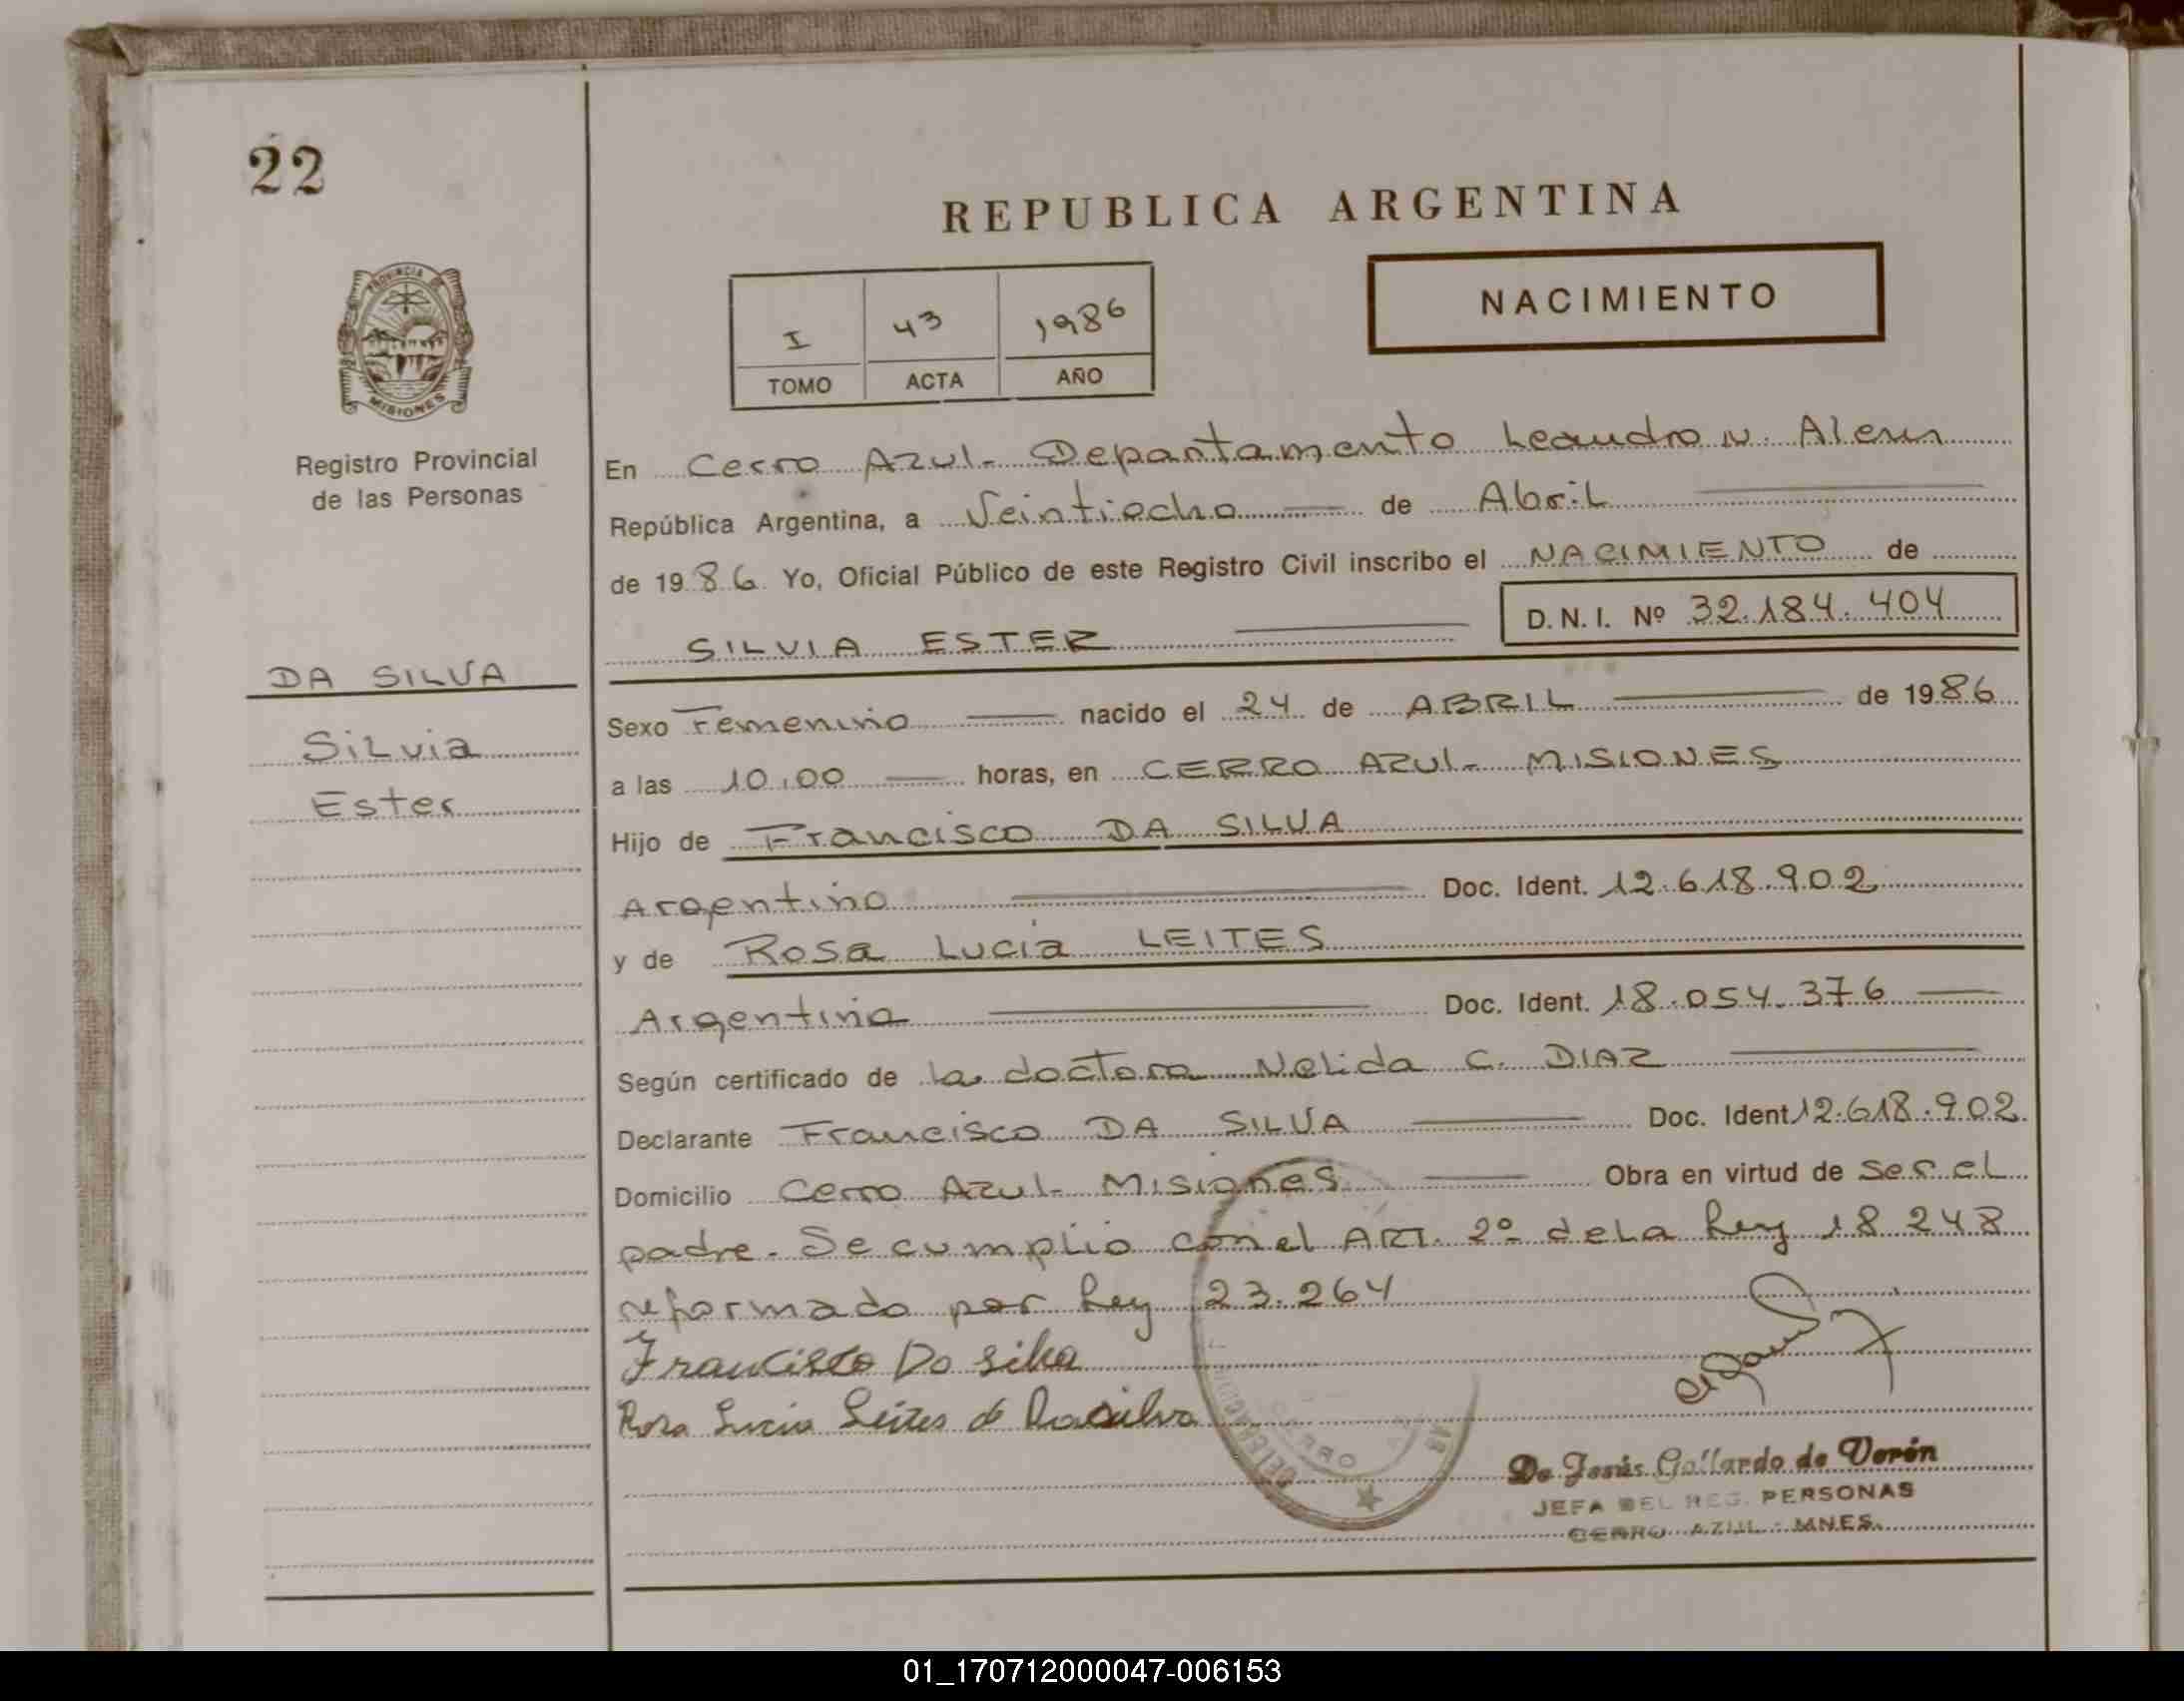 22
REPUBLICA ARGENTINA
PROVINCIA DE
MISIONES
I 43 1986
TOMO ACTA AÑO
NACIMIENTO
Registro Provincial
de las Personas
En Cerro Azul- Departamento Leandro N. Alem
República Argentina, a Veintiocho de Abril
de 1986. Yo, Oficial Público de este Registro Civil inscribo el NACIMIENTO de
SILVIA ESTER D.N.I. Nº 32.184.404
DA SILVA
Silvia
Ester
Sexo Femenino nacido el 24 de ABRIL de 1986
a las 10,00 horas, en CERRO AZUL- MISIONES
Hijo de Francisco DA SILVA
Argentino Doc. Ident. 12.618.902
y de Rosa Lucia LEITES
Argentina Doc. Ident. 18.054.376
Según certificado de la doctora Nelida C. DIAZ
Declarante Francisco DA SILVA Doc. Ident 12.618.902.
Domicilio Cerro Azul- Misiones Obra en virtud de ser el
padre. Se cumplio con el ART. 2º de La Ley 18.248
reformado por Ley 23.264
Francisco Da Silva
Rosa Lucia Leites d Dasilva
De Jesús Gallardo de Verón
JEFA DEL REG. PERSONAS
CERRO AZUL - MNES.
01_170712000047-006153